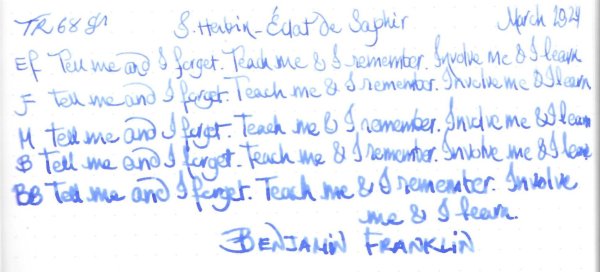 TR 68 gr J. Herbin - Éclat de Saphir March 2024
EF Tell me and I forget. Teach me & I remember. Involve me & I learn
F Tell me and I forget. Teach me & I remember. Involve me & I learn
M Tell me and I forget. Teach me & I remember. Involve me & I learn
B Tell me and I forget. Teach me & I remember. Involve me & I learn
BB Tell me and I forget. Teach me & I remember. Involve
me & I learn.
BENJAMIN FRANKLIN